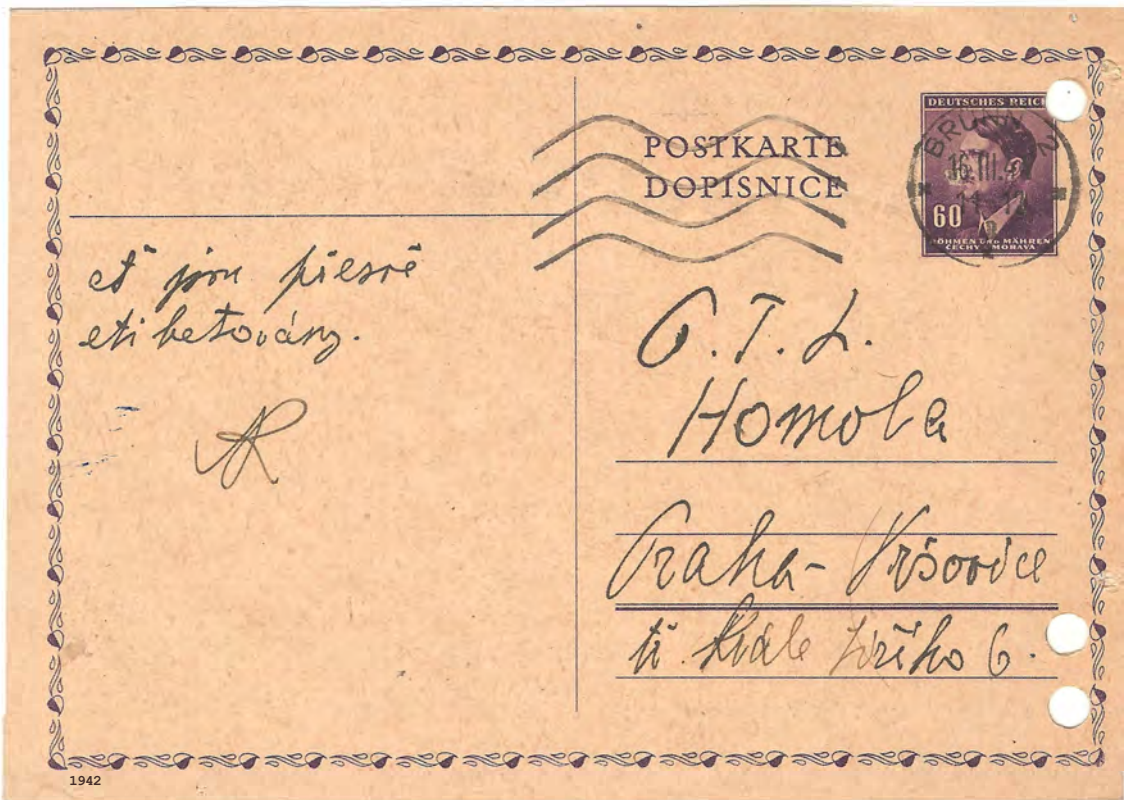 POSTKARTE
DOPISNICE
DEUTSCHES REICH
BRÜNN 2
16.III.4
60
BÖHMEN UND MÄHREN
ČECHY - MORAVA
ať jsou přesně
etiketovány.
P. T. L.
Homola
Praha - Vršovice
tř. Krále Jiřího 6.
1942